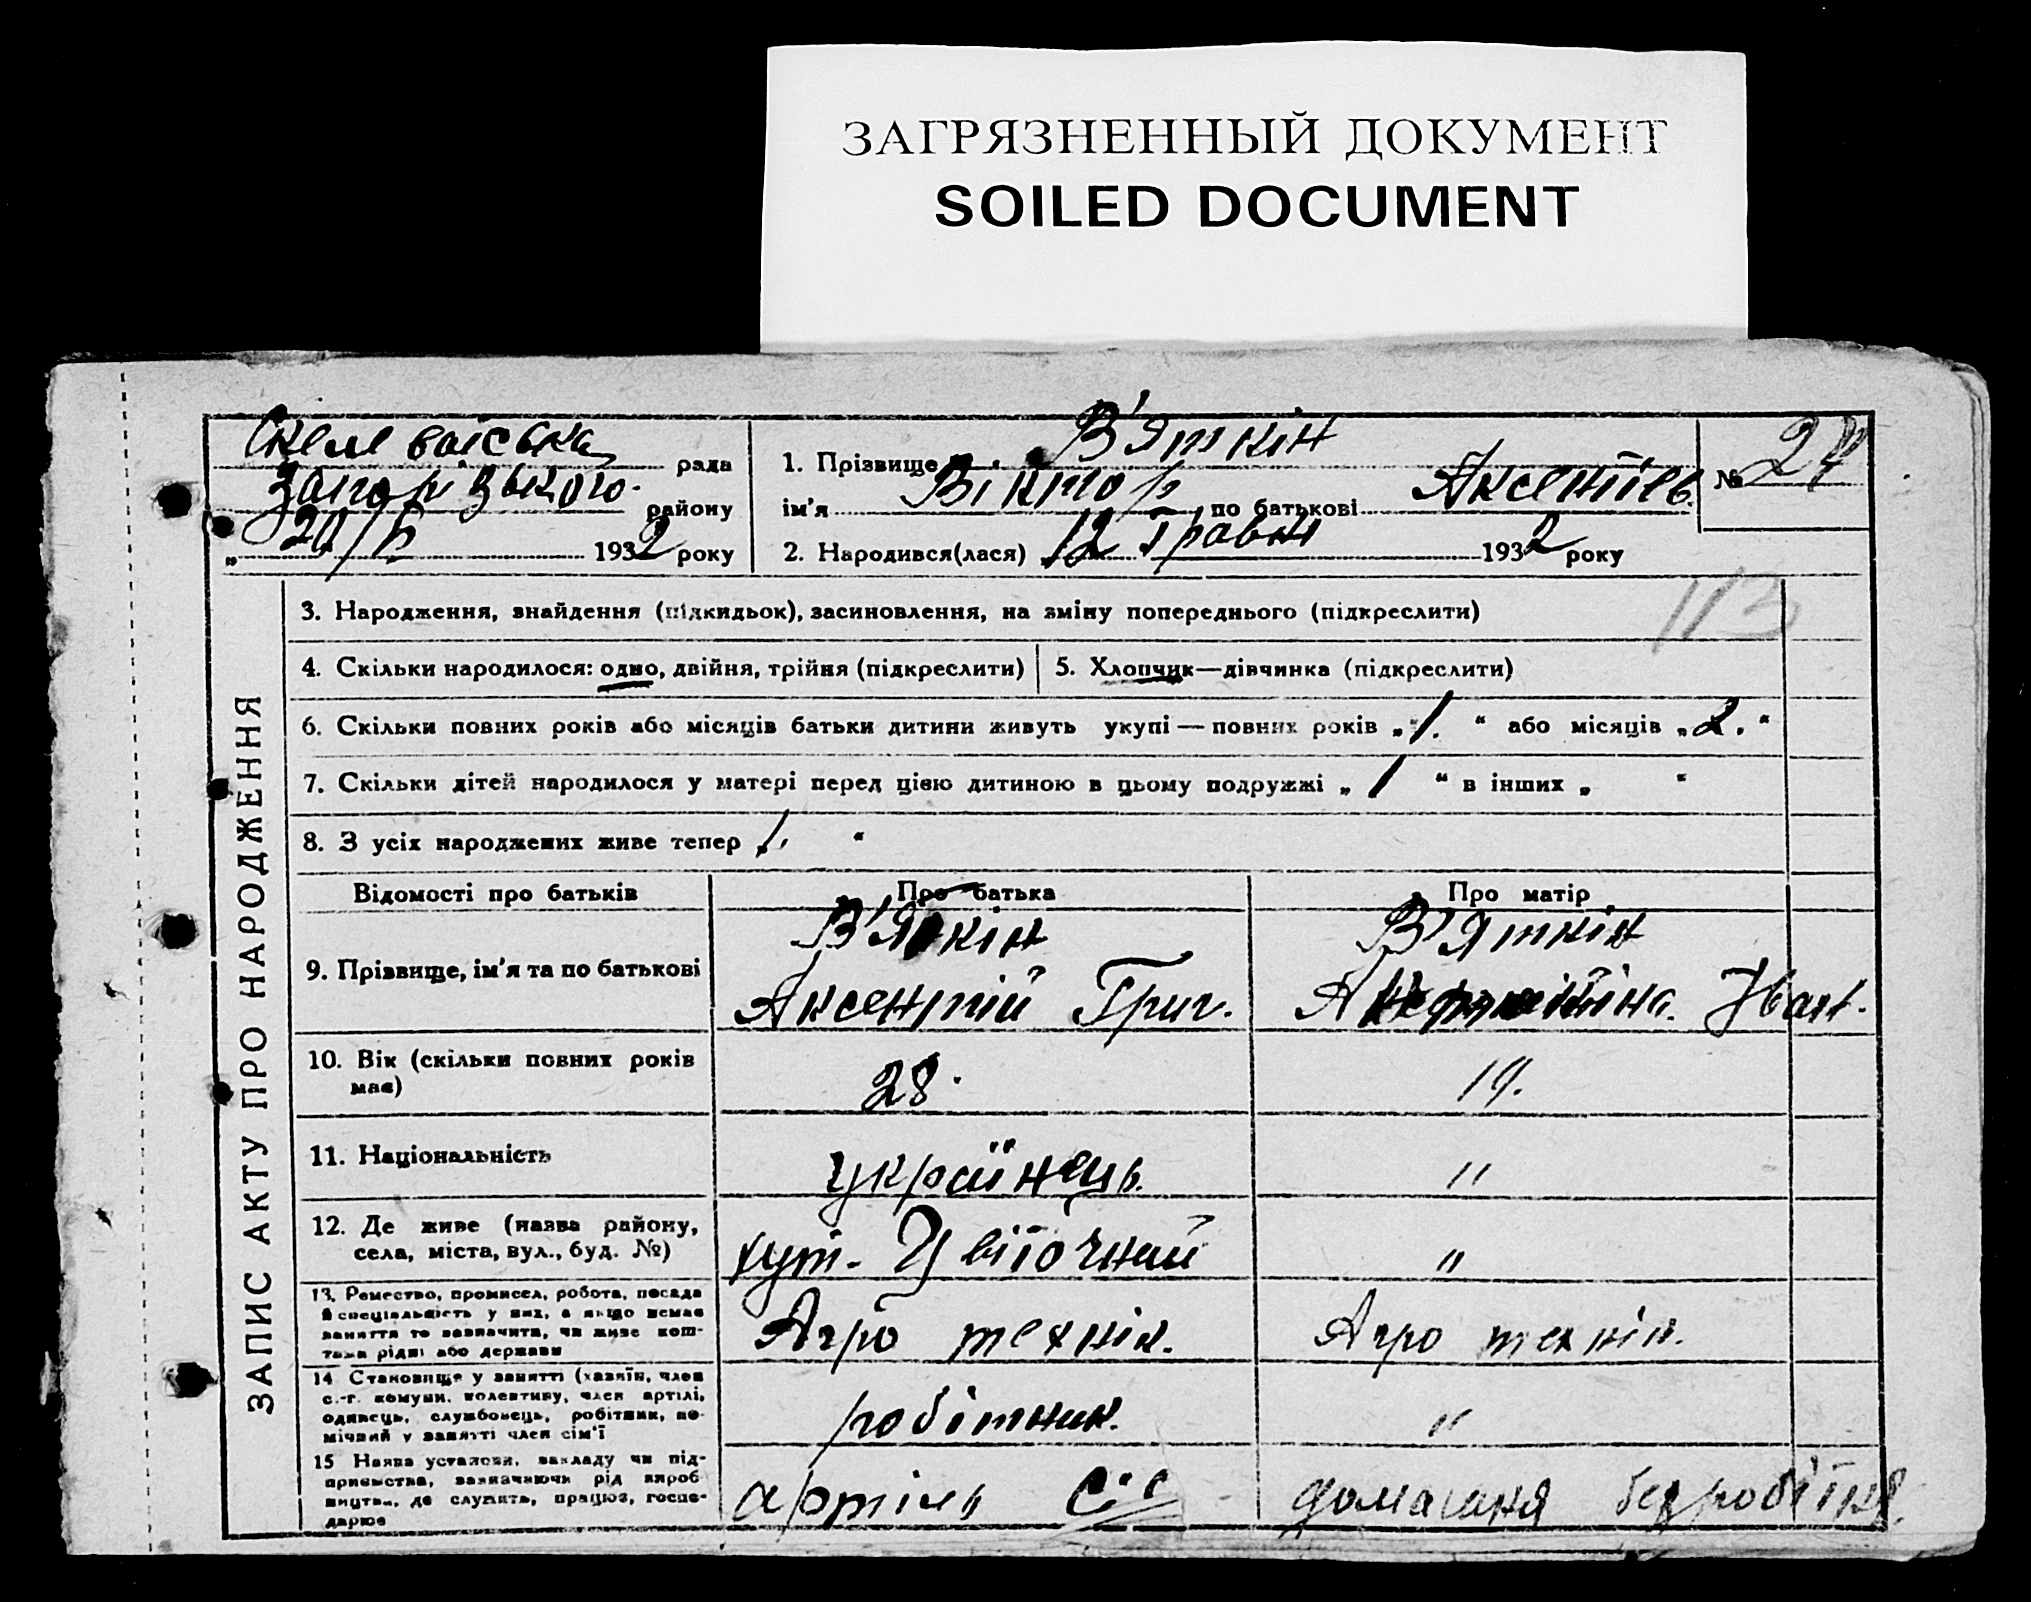 ЗАГРЯЗНЕННЫЙ ДОКУМЕНТ
SOILED DOCUMENT
рада
району
„ 20/V 1932 року
1. Прізвище В'яткін
ім'я Віктор по батькові Аксентіев.
№ 27
2. Народився(лася) 12 Травня 1932 року
113
ЗАПИС АКТУ ПРО НАРОДЖЕННЯ
3. Народження, знайдення (підкидьок), засиновлення, на зміну попереднього (підкреслити)
4. Скільки народилося: одно, двійня, трійня (підкреслити)
5. Хлопчик—дівчинка (підкреслити)
6. Скільки повних років або місяців батьки дитини живуть укупі — повних років „1." або місяців „2."
7. Скільки дітей народилося у матері перед цією дитиною в цьому подружжі „1" в інших „ "
8. З усіх народжених живе тепер „1. "
Відомості про батьків
Про батька
Про матір
9. Прізвище, ім'я та по батькові
В'яткін
Аксентій Григ.
В'яткін
Іван.
10. Вік (скільки повних років
має)
28.
19.
11. Національність
українець.
"
12. Де живе (назва району,
села, міста, вул., буд. №)
хут. Цвіточний
"
13. Ремество, промисел, робота, посада
й спеціяльність у них, а якщо немає
заняття то зазначити, чи живе кош-
тами рідні або держави
Агро технік.
Агро технік.
14 Становище у занятті (хазяїн, член
с.-г. комуни, колективу, член артілі,
одинець, службовець, робітник, по-
мічний у занятті член сім'ї
робітник.
"
15 Назва установи, закладу чи під-
приємства, зазначаючи рід вироб
ництва, де служить, працює, госпо-
дарює
артіль С.С
домашня безробітня.